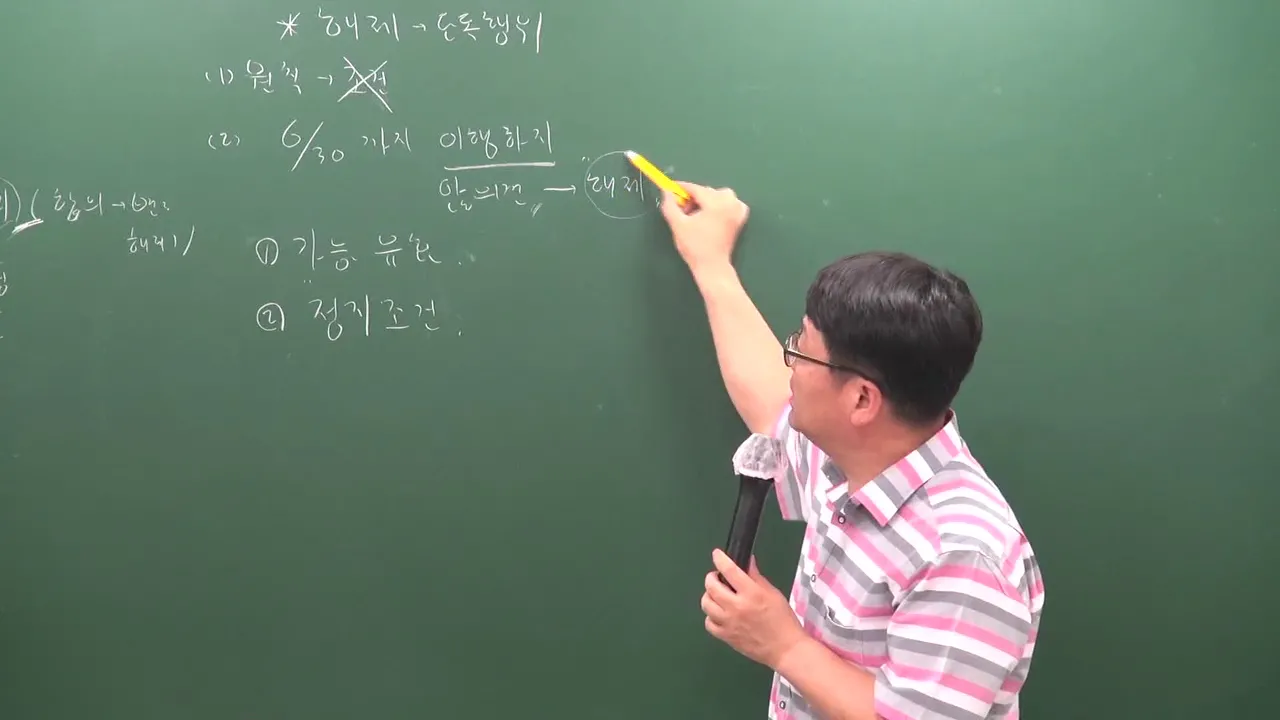 * 해제 → 단독행위
(1) 원칙 → 조건
(2) 6/30 까지 이행하지
않으면 → "해제"
합의 →
해제
① 가능 유효.
② 정지조건.